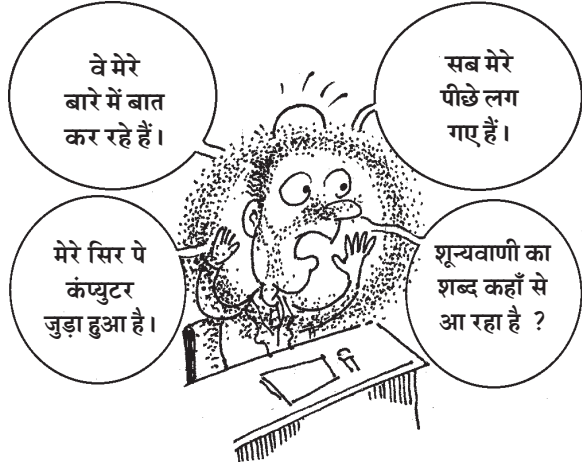 वे मेरे
बारे में बात
कर रहे हैं।
सब मेरे
पीछे लग
गए हैं।
मेरे सिर पे
कंप्युटर
जुड़ा हुआ है।
शून्यवाणी का
शब्द कहाँ से
आ रहा है ?